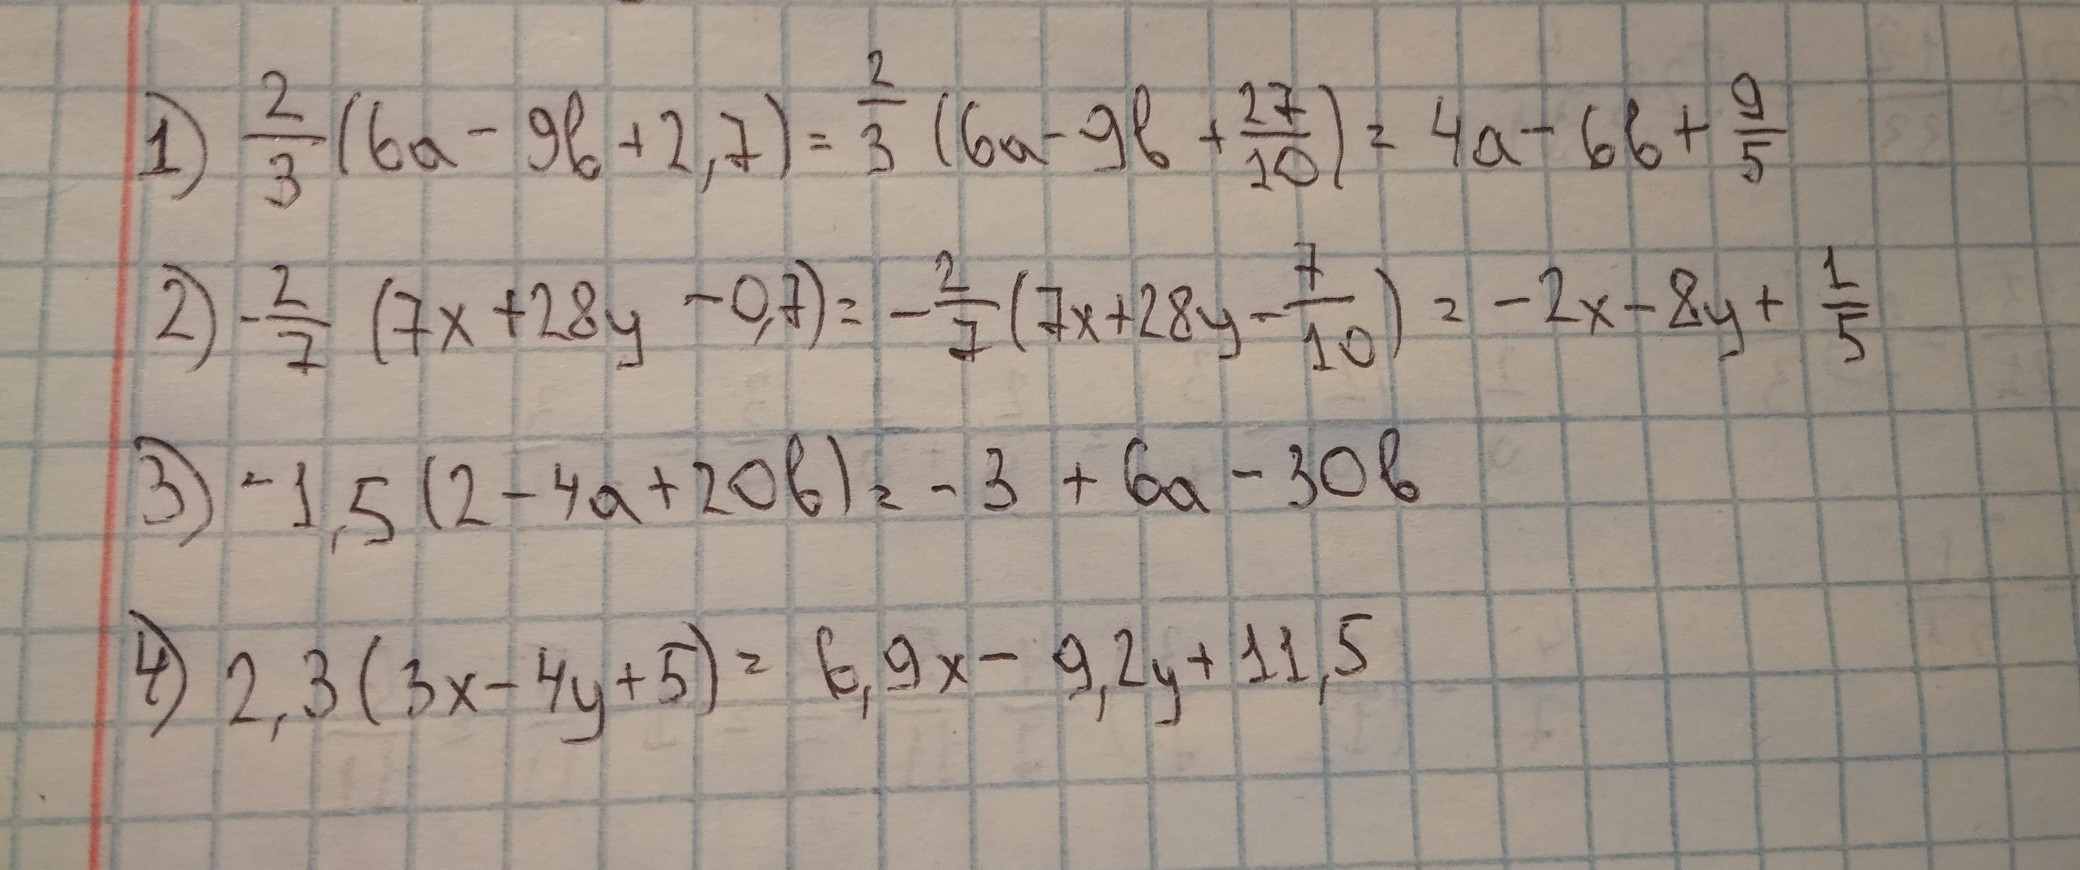 1) 2/3 (6a - 9b + 2,7) = 2/3 (6a - 9b + 27/10) = 4a - 6b + 9/5
2) -2/7 (7x + 28y - 0,7) = -2/7 (7x + 28y - 7/10) = -2x - 8y + 1/5
3) -1,5 (2 - 4a + 20b) = -3 + 6a - 30b
4) 2,3 (3x - 4y + 5) = 6,9x - 9,2y + 11,5